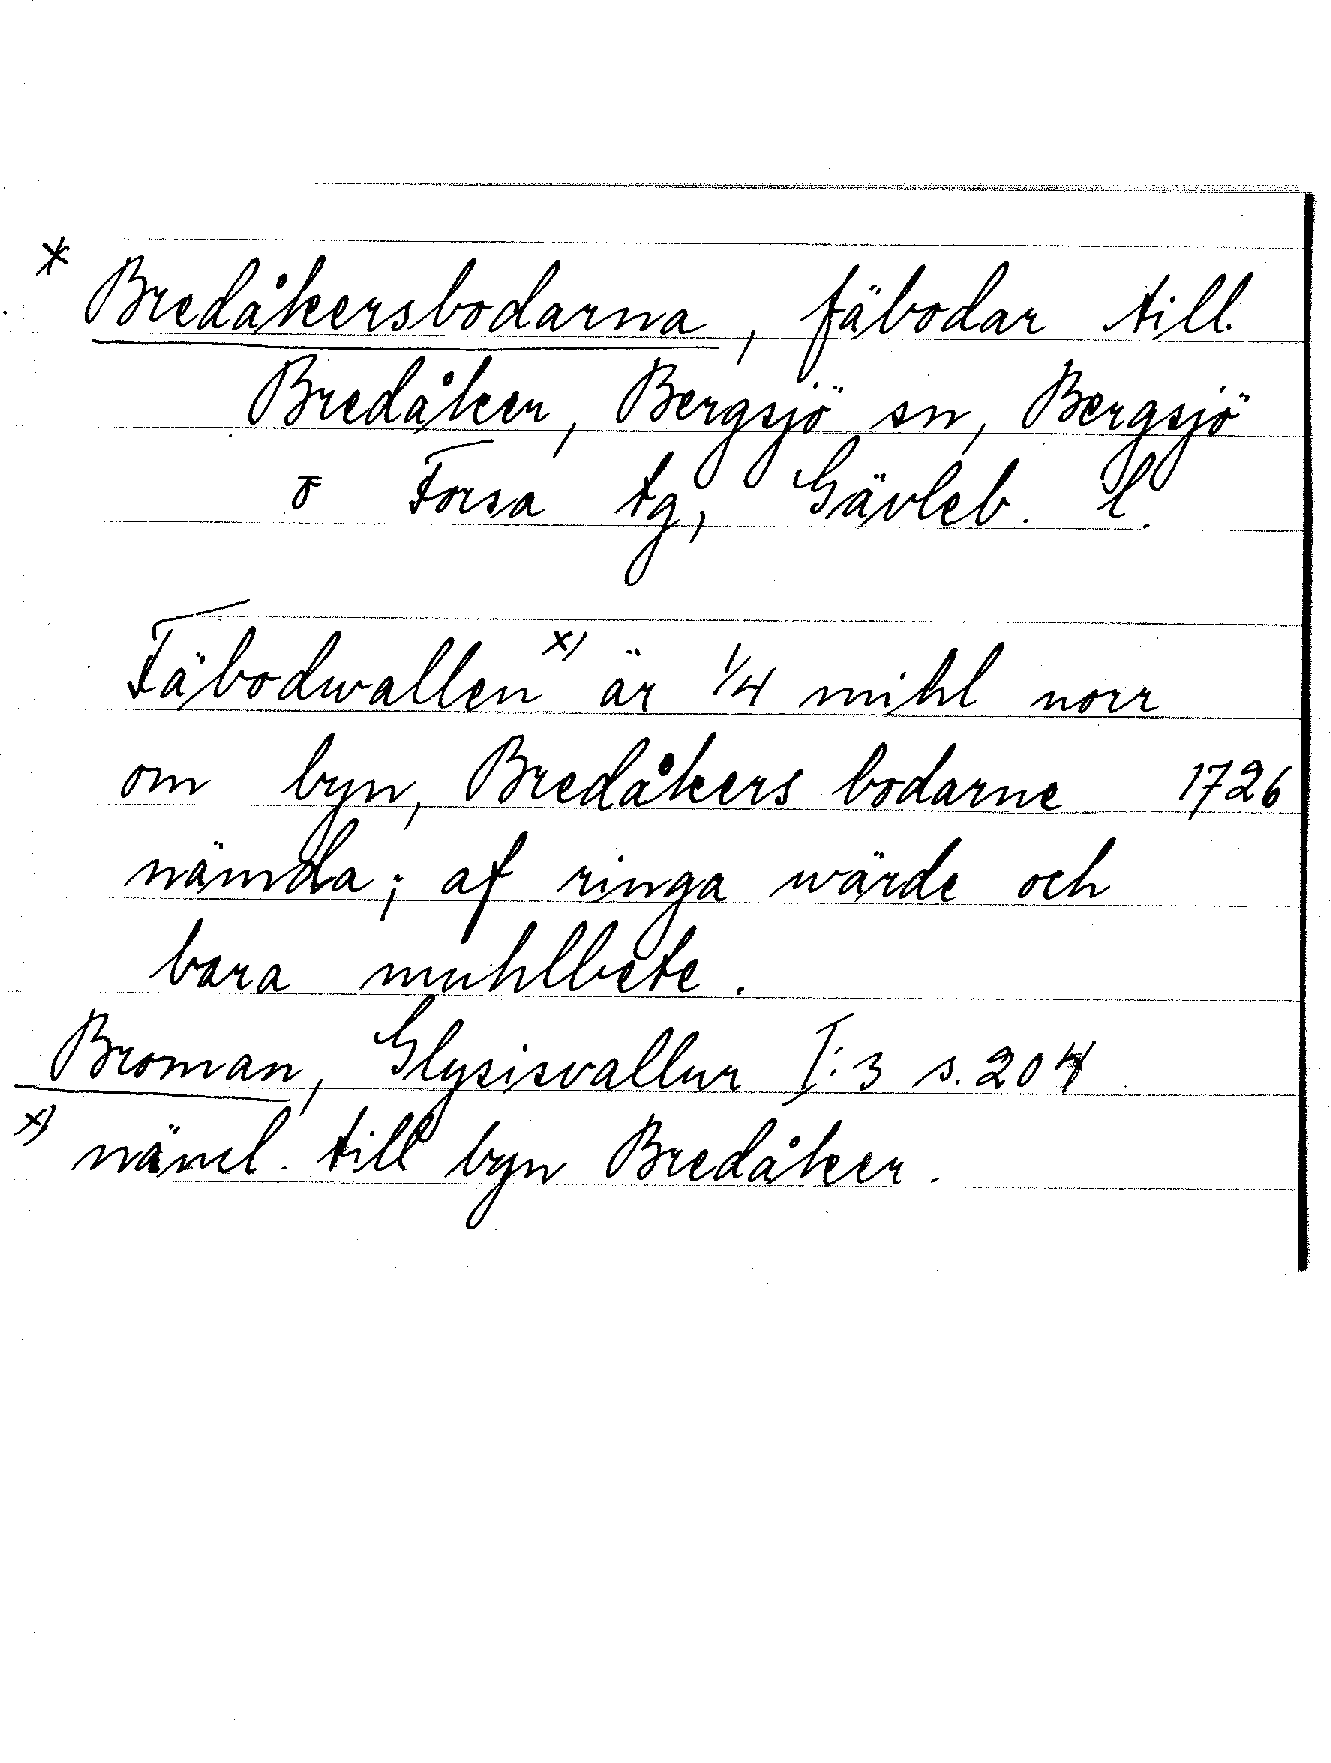 * Bredåkersbodarna, fäbodar till
Bredåker, Bergsjö sn, Bergsjö
o Forsa tg, Gävleb. l.
Fäbodwallen x) är 1/4 mihl norr
om byn, Bredåkers bodarne 1726
nämda; af ringa wärde och
bara muhlbete.
Broman, Glysisvallur I:3 s. 204
x) näml. till byn Bredåker.